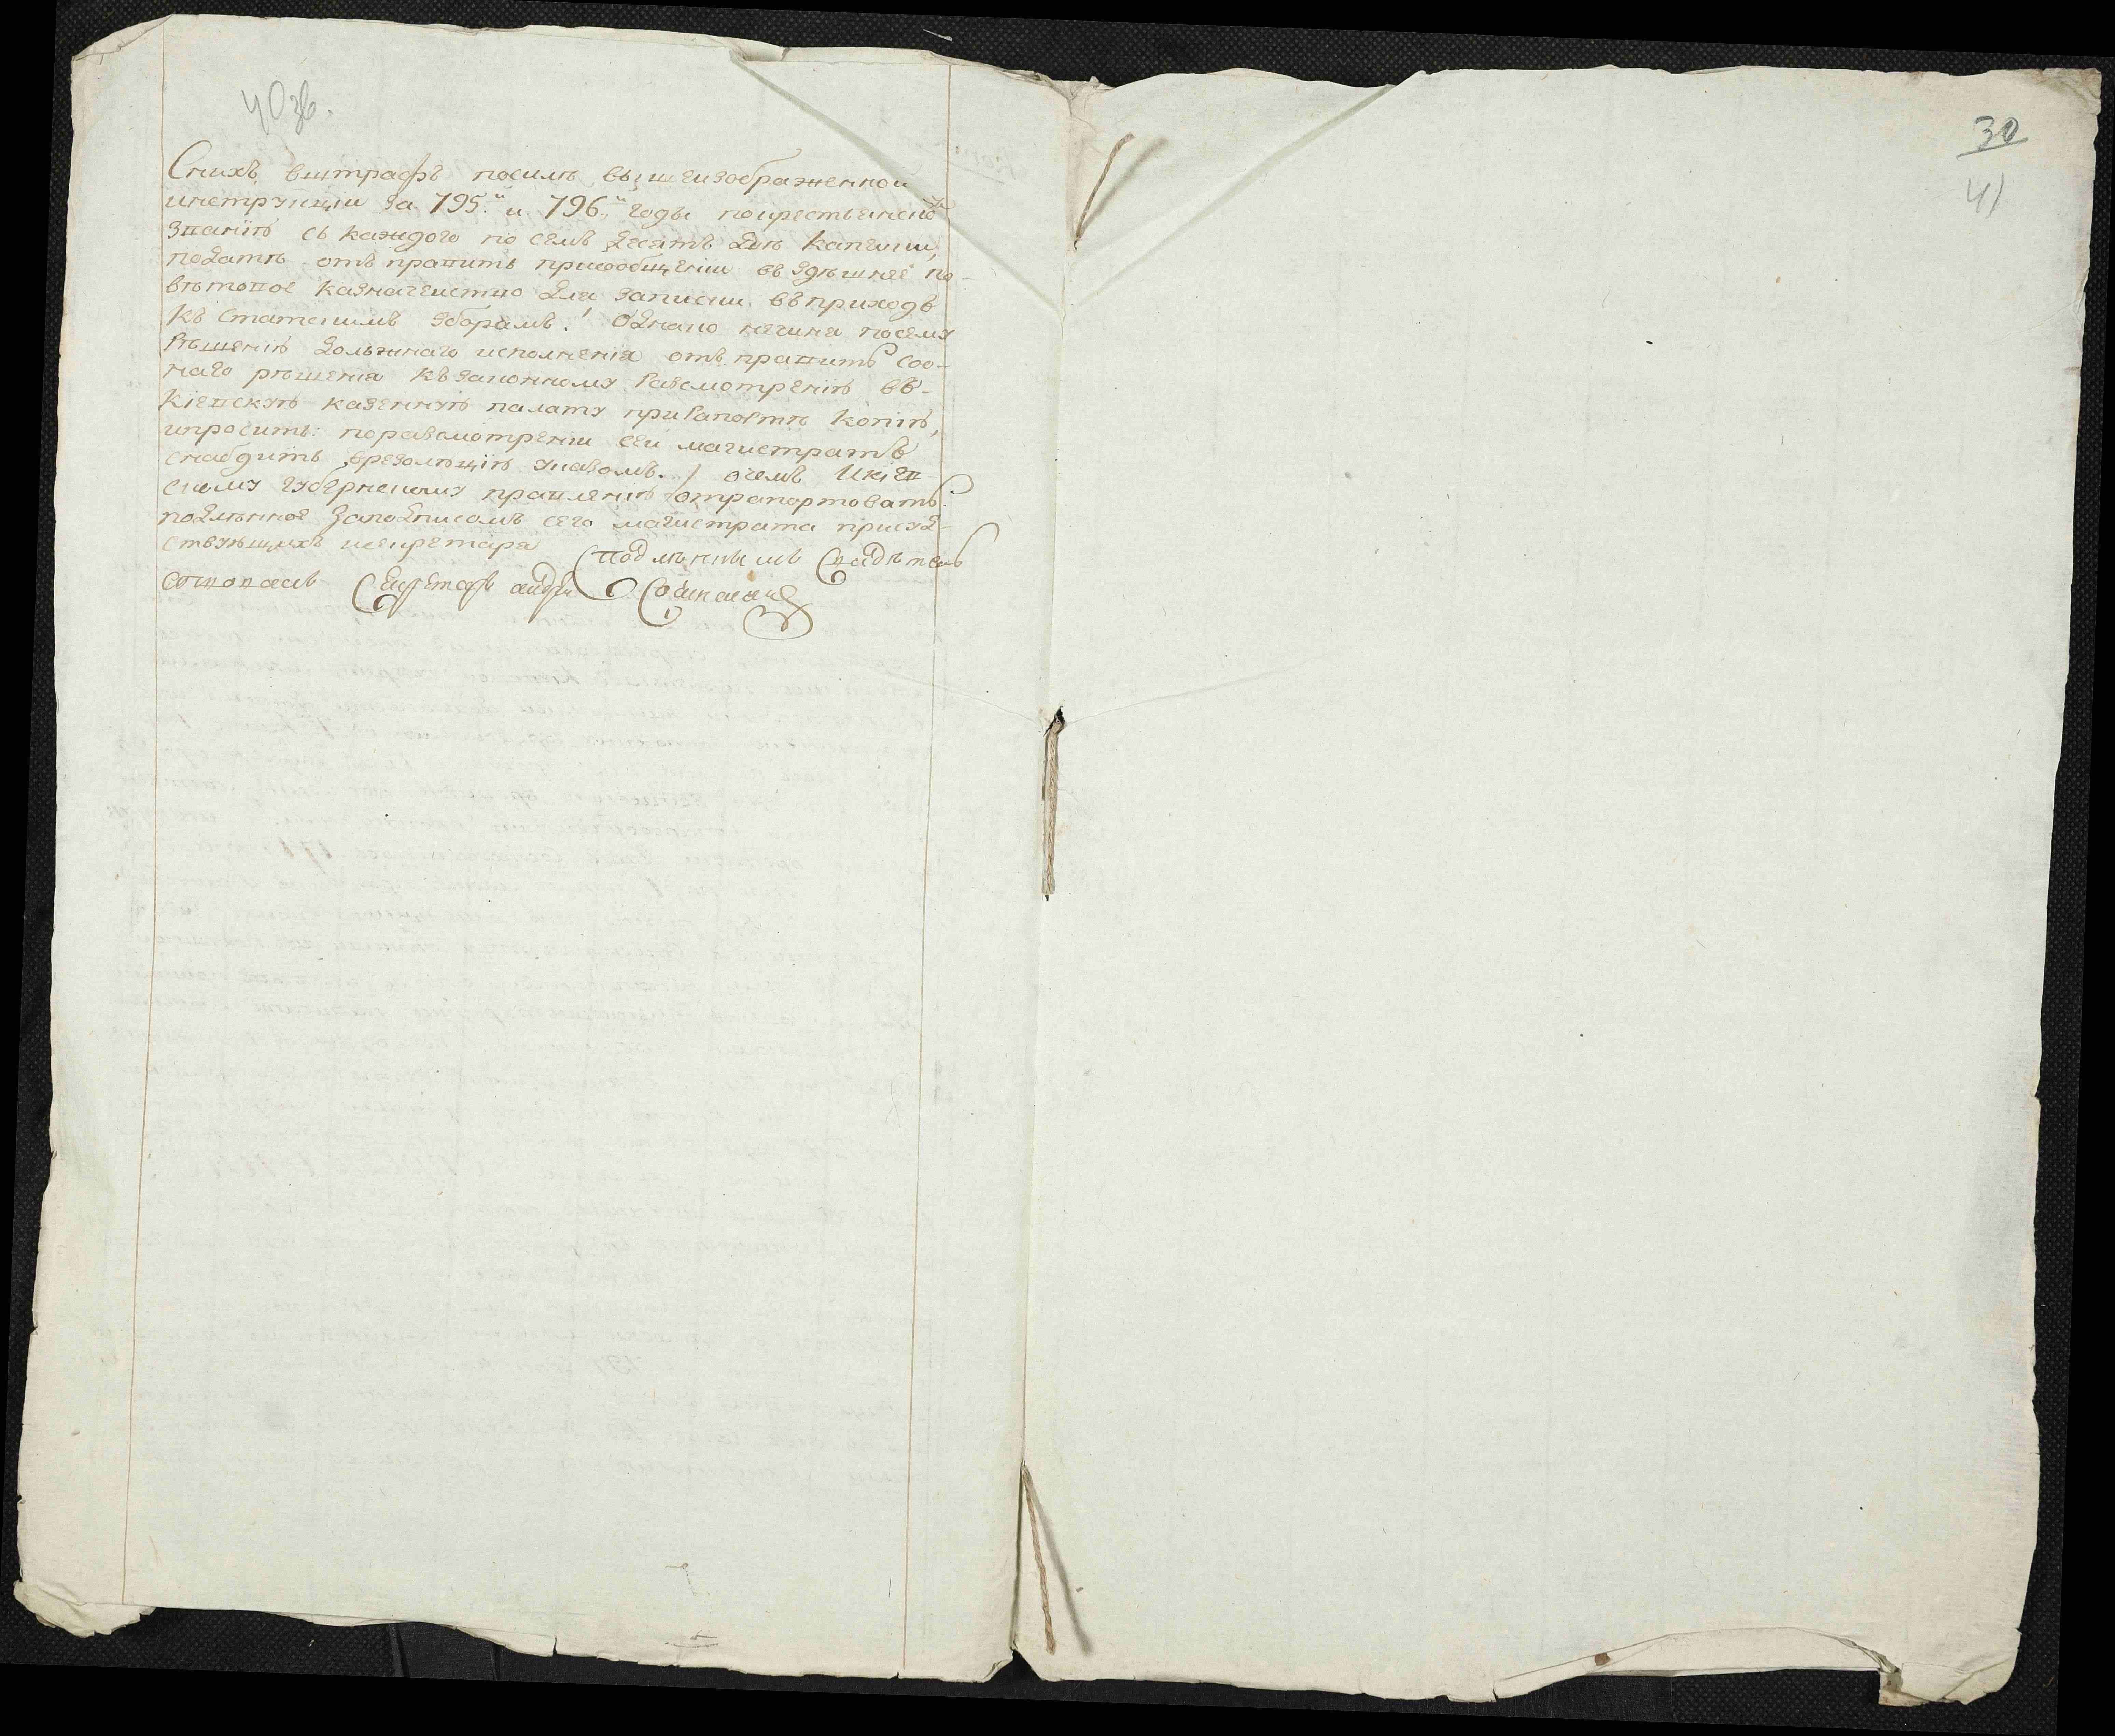 40зв.
Снихъ вштрафъ посилѣ вышеизображенной
инструкціи за 795.й и 796.й годы покрестьянско му
званію съ каждого по семъ десятъ двѣ копѣики,
подати отъправить присообщеніи въ здѣшнее по-
вѣтовое казначеиство для записки въприходъ
къ статскимъ зборамъ. Однако нечиня посему
Рѣшенію должнаго исполненія отъправить соо-
наго рѣшенія къзаконному Разсмотренію въ-
Кіевскую казенную палату приРапортѣ копію,
ипросить: поразсмотреніи сеи магистратъ
снабдить врезолюцію указомъ. / очемъ Икіев-
скому губернскому правленію отрапортовать.
подлѣнное Заподписомъ сего магистрата присуд-
ствующихъ исекретаря
Сподлѣннымъ Свидѣтел
ствовалъ Секретарь андрей
30
41